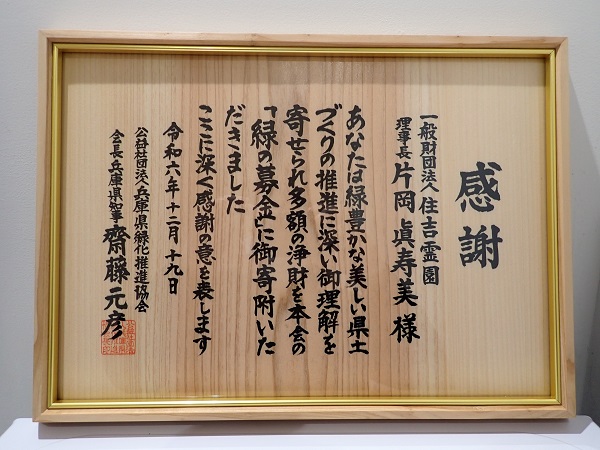 感謝
一般財団法人住吉霊園
理事長 片岡眞寿美様
あなたは緑豊かな美しい県土
づくりの推進に深い御理解を
寄せられ多額の浄財を本会の
「緑の募金」に御寄附いた
だきました
ここに深く感謝の意を表します
令和六年十二月十九日
公益社団法人兵庫県緑化推進協会
会長兵庫県知事 齋藤元彦